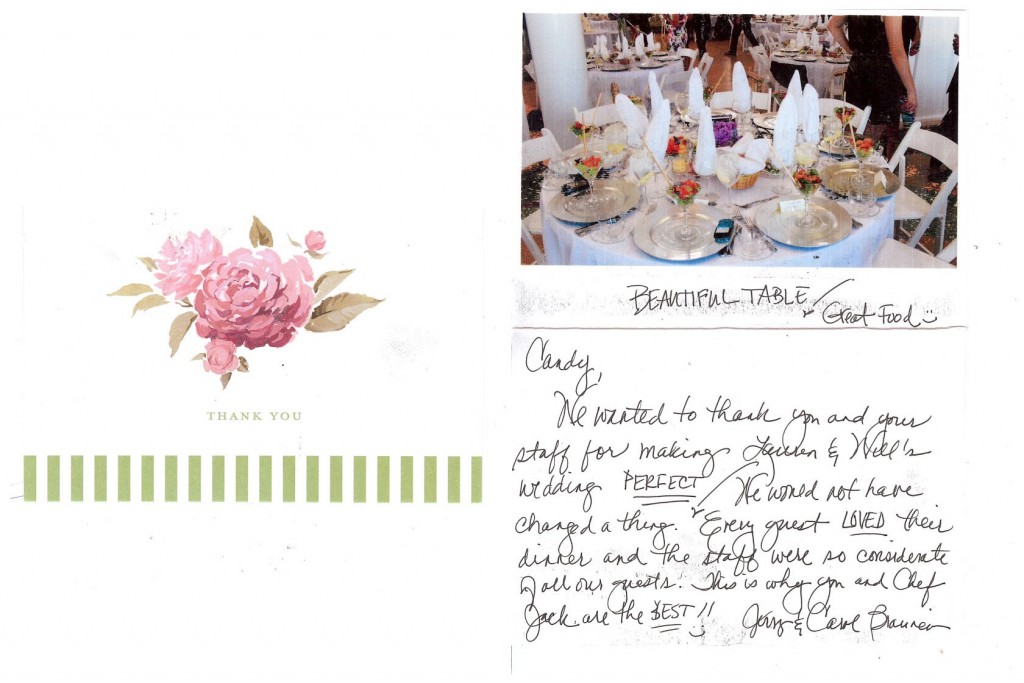 THANK YOU
BEAUTIFUL TABLE!
Great Food
Candy,
We wanted to thank you and your
staff for making Lauren & Will's
wedding PERFECT! We would not have
changed a thing. Every guest LOVED their
dinner and the staff were so considerate
of all our guests. This is why you and Chef
Jack are the BEST!!
& Carol